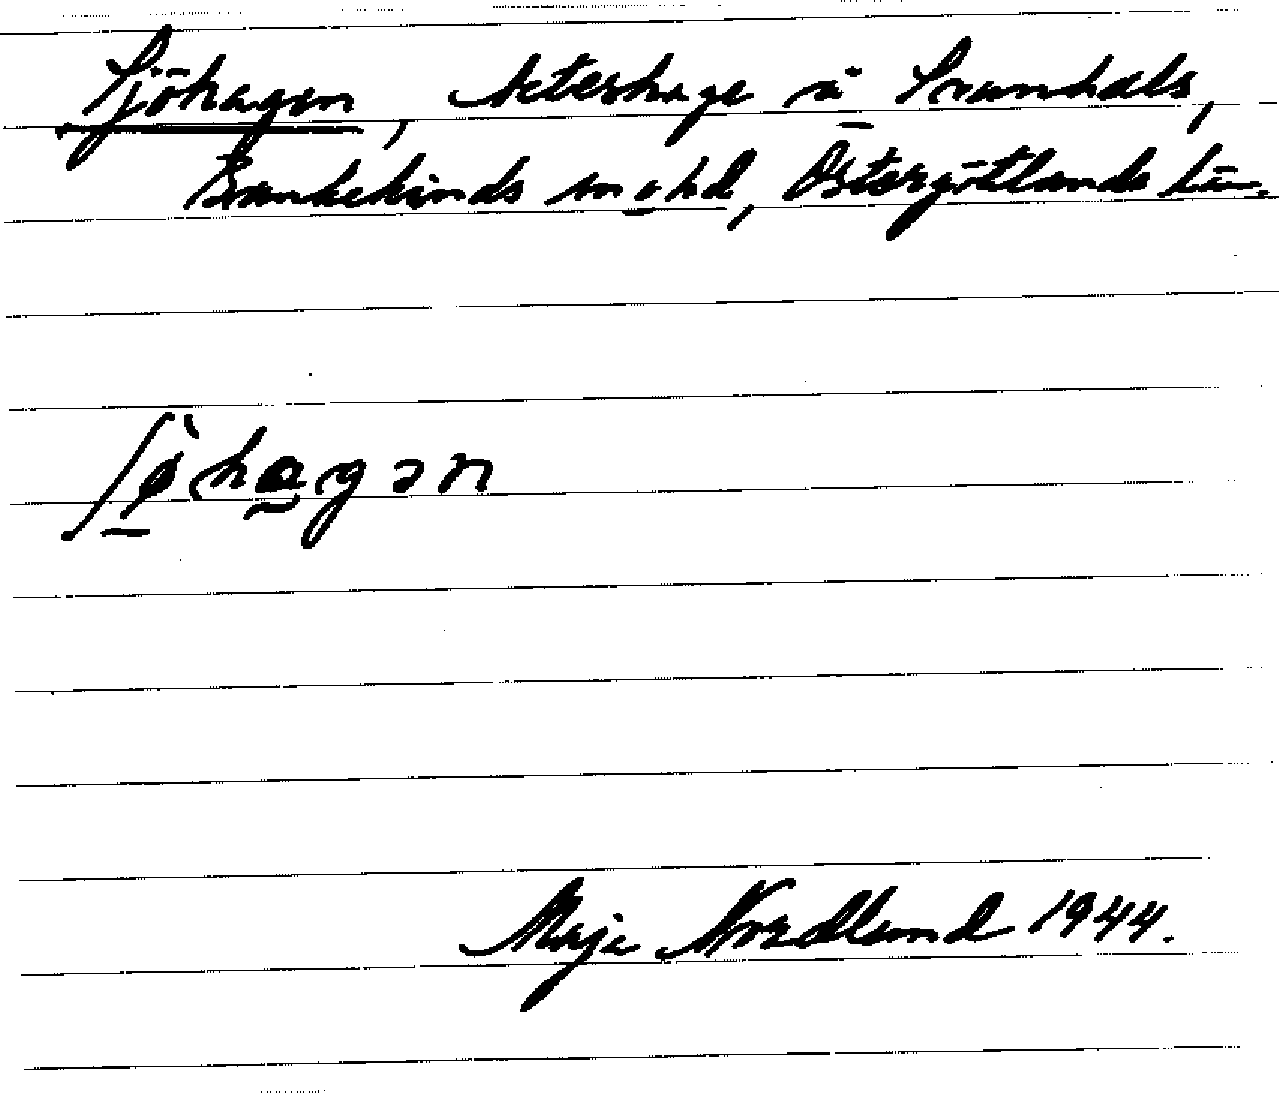 Sjöhagen, beteshage å Svanhals,
Bankekinds sn o hd, Östergötlands län.
ʃø̀hagən
Maja Nordlund 1944.